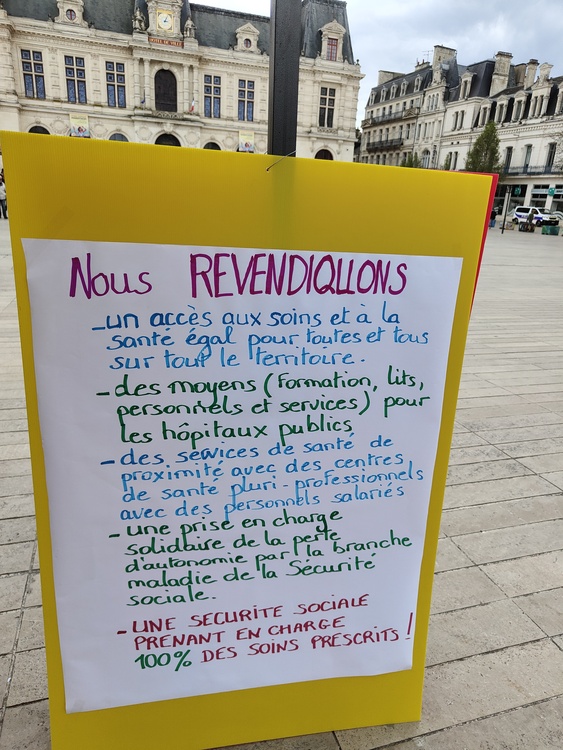 Nous REVENDIQUONS
- un accès aux soins et à la
santé égal pour toutes et tous
sur tout le territoire.
- des moyens (formation, lits,
personnels et services) pour
les hôpitaux publics
- des services de santé de
proximité avec des centres
de santé pluri-professionnels
avec des personnels salariés
- une prise en charge
solidaire de la perte
d'autonomie par la branche
maladie de la Sécurité
sociale.
- UNE SECURITE SOCIALE
PRENANT EN CHARGE
100% DES SOINS PRESCRITS !